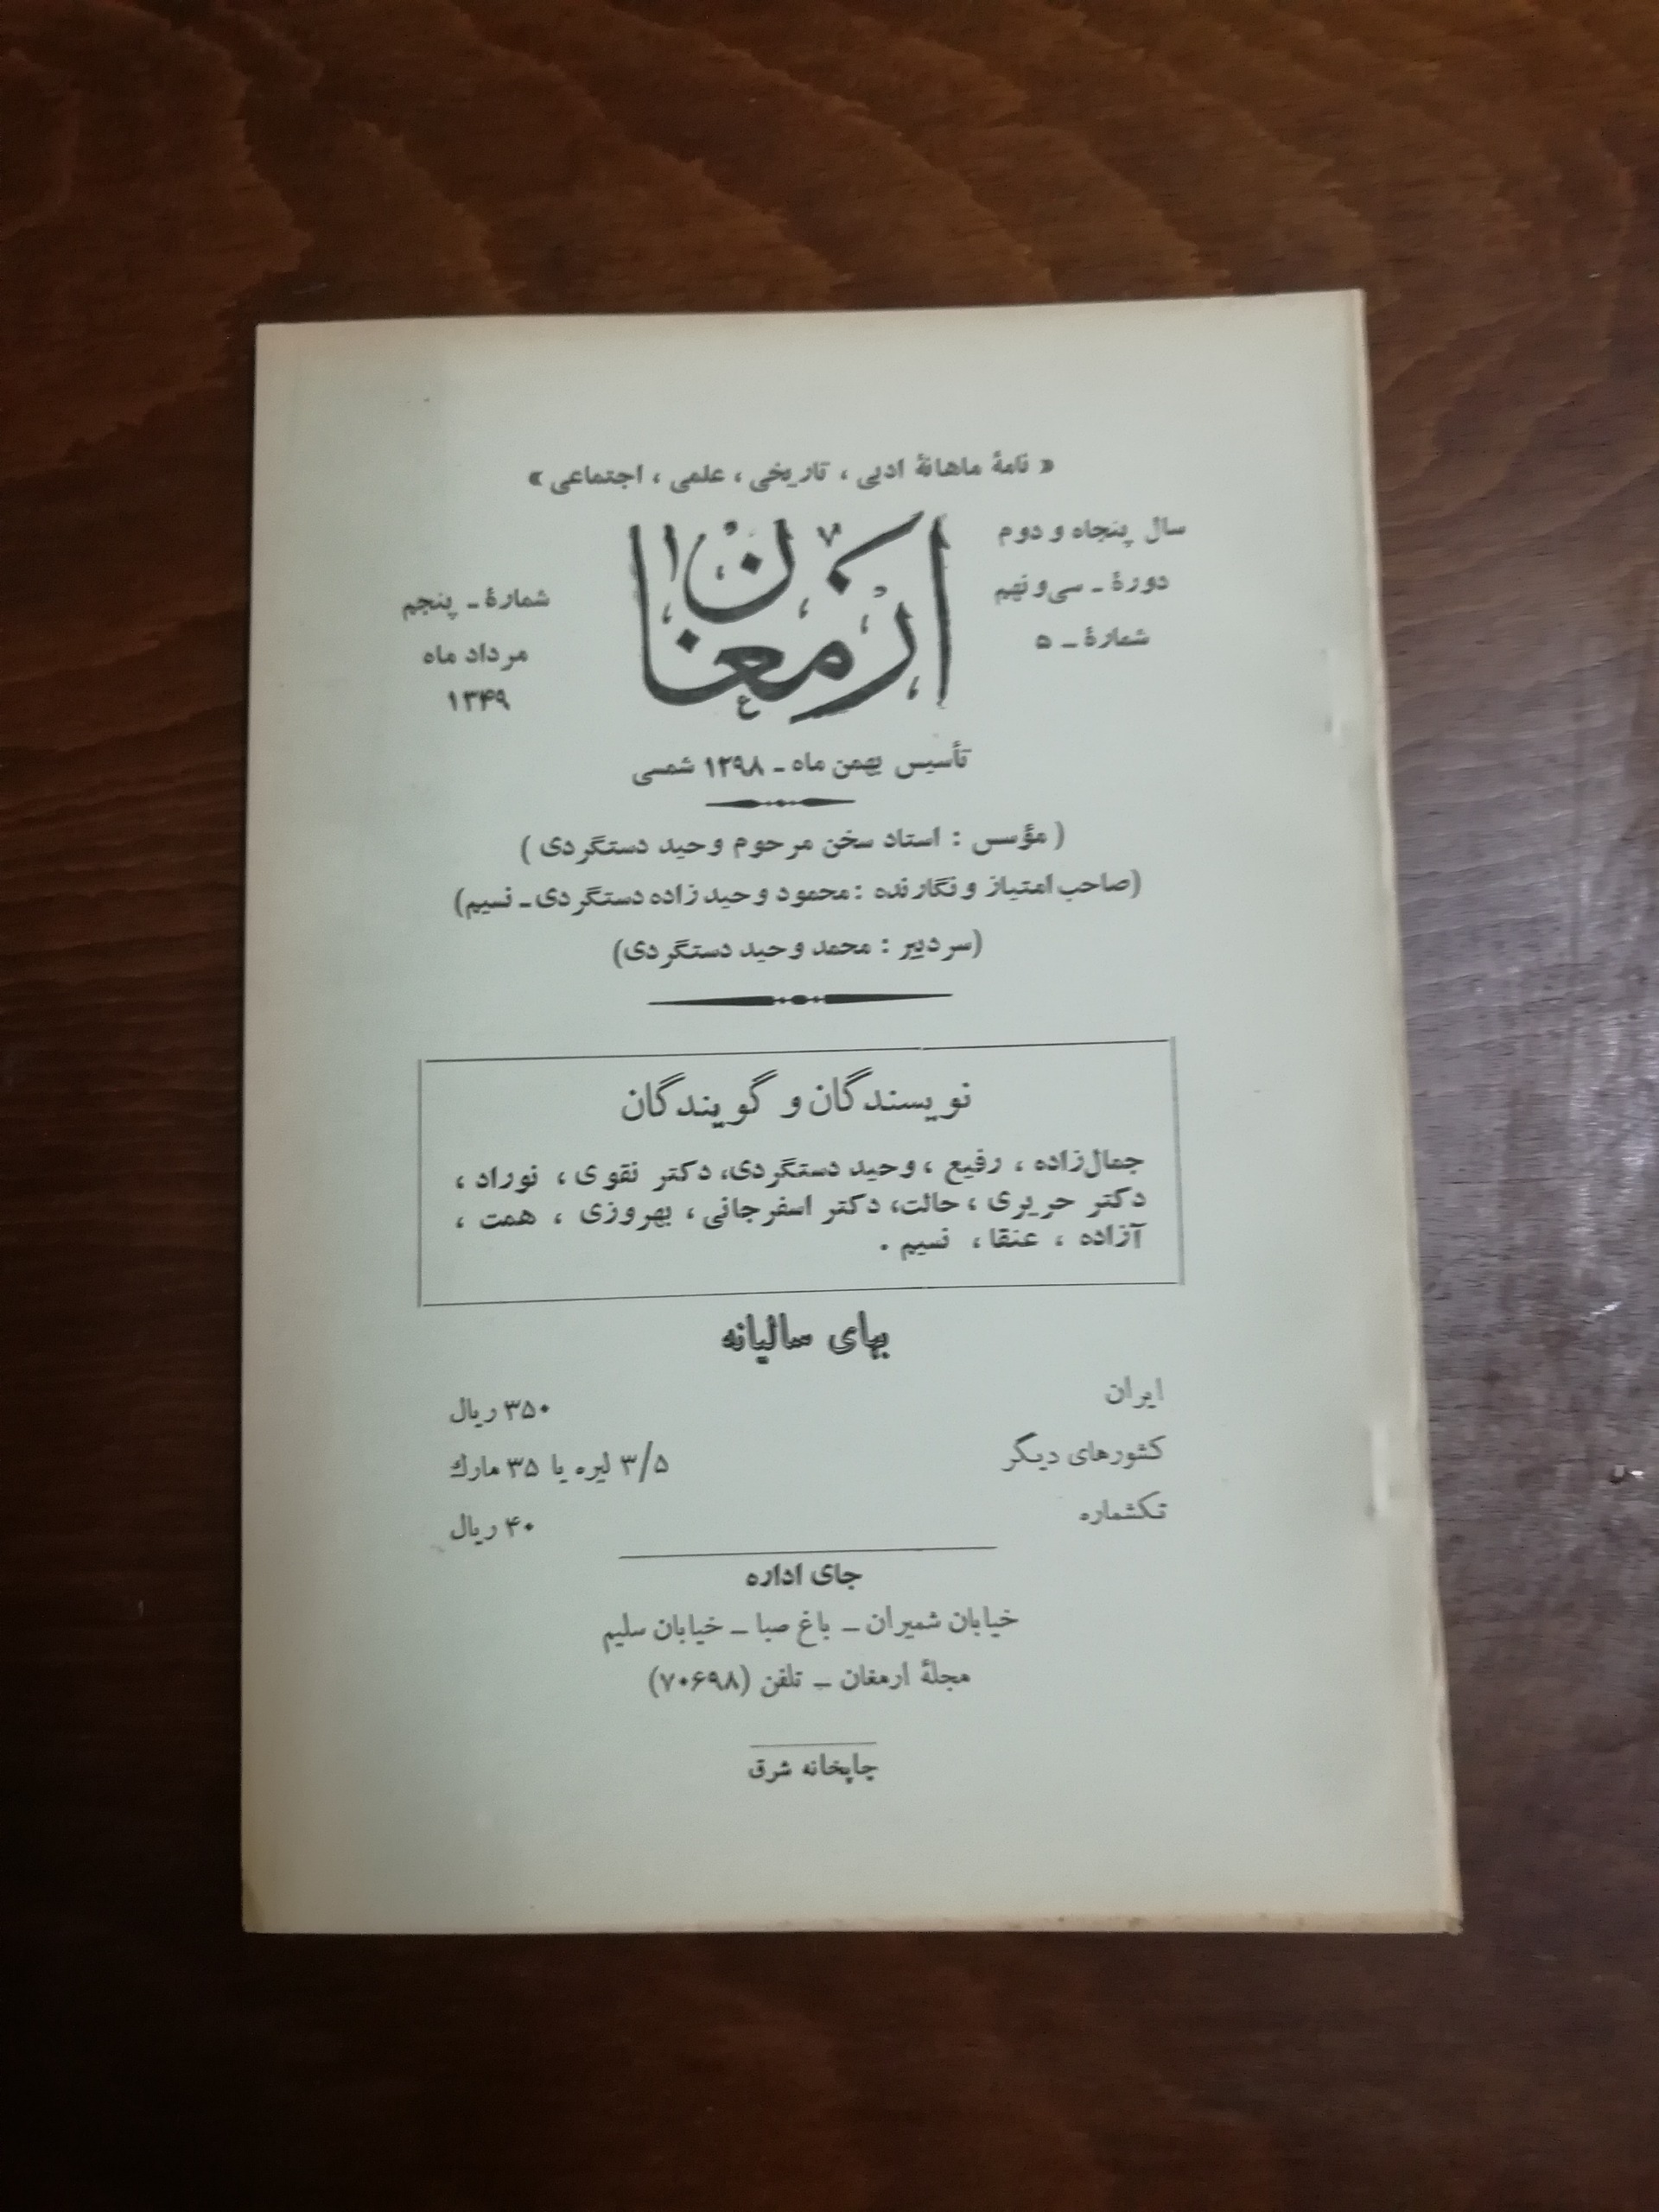 « نامهٔ ماهانهٔ ادبی ، تاریخی ، علمی ، اجتماعی »
سال پنجاه و دوم
دورهٔ ـ سی‌و‌نهم
شمارهٔ ـ ۵
ارمغان
شمارهٔ ـ پنجم
مرداد ماه
۱۳۴۹
تأسیس بهمن ماه ـ ۱۲۹۸ شمسی
( مؤسس : استاد سخن مرحوم وحید دستگردی )
(صاحب امتیاز و نگارنده : محمود وحید زاده دستگردی ـ نسیم)
(سردبیر : محمد وحید دستگردی)
نویسندگان و گویندگان
جمال‌زاده ، رفیع ، وحید دستگردی، دکتر نقوی ، نوراد ،
دکتر حریری ، حالت، دکتر اسفرجانی ، بهروزی ، همت ،
آزاده ، عنقا ، نسیم .
بهای سالیانه
ایران ۳۵۰ ریال
کشورهای دیگر ۳/۵ لیره یا ۳۵ مارك
تکشماره ۴۰ ریال
جای اداره
خیابان شمیران ـ باغ صبا ـ خیابان سلیم
مجلهٔ ارمغان ـ تلفن (۷۰۶۹۸)
چاپخانه شرق